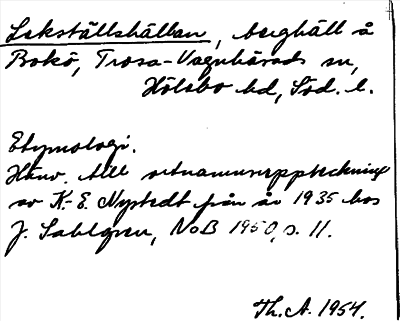 Lekställshällan, berghäll å
Bokö, Trosa-Vagnhärads sn,
Hölebo hd, Söd. l.
Etymologi.
Hänv. till ortnamnsuppteckning
av K.-E. Nystedt från år 1935 hos
J. Sahlgren, NoB 1950, s. 11.
Th. A. 1954.